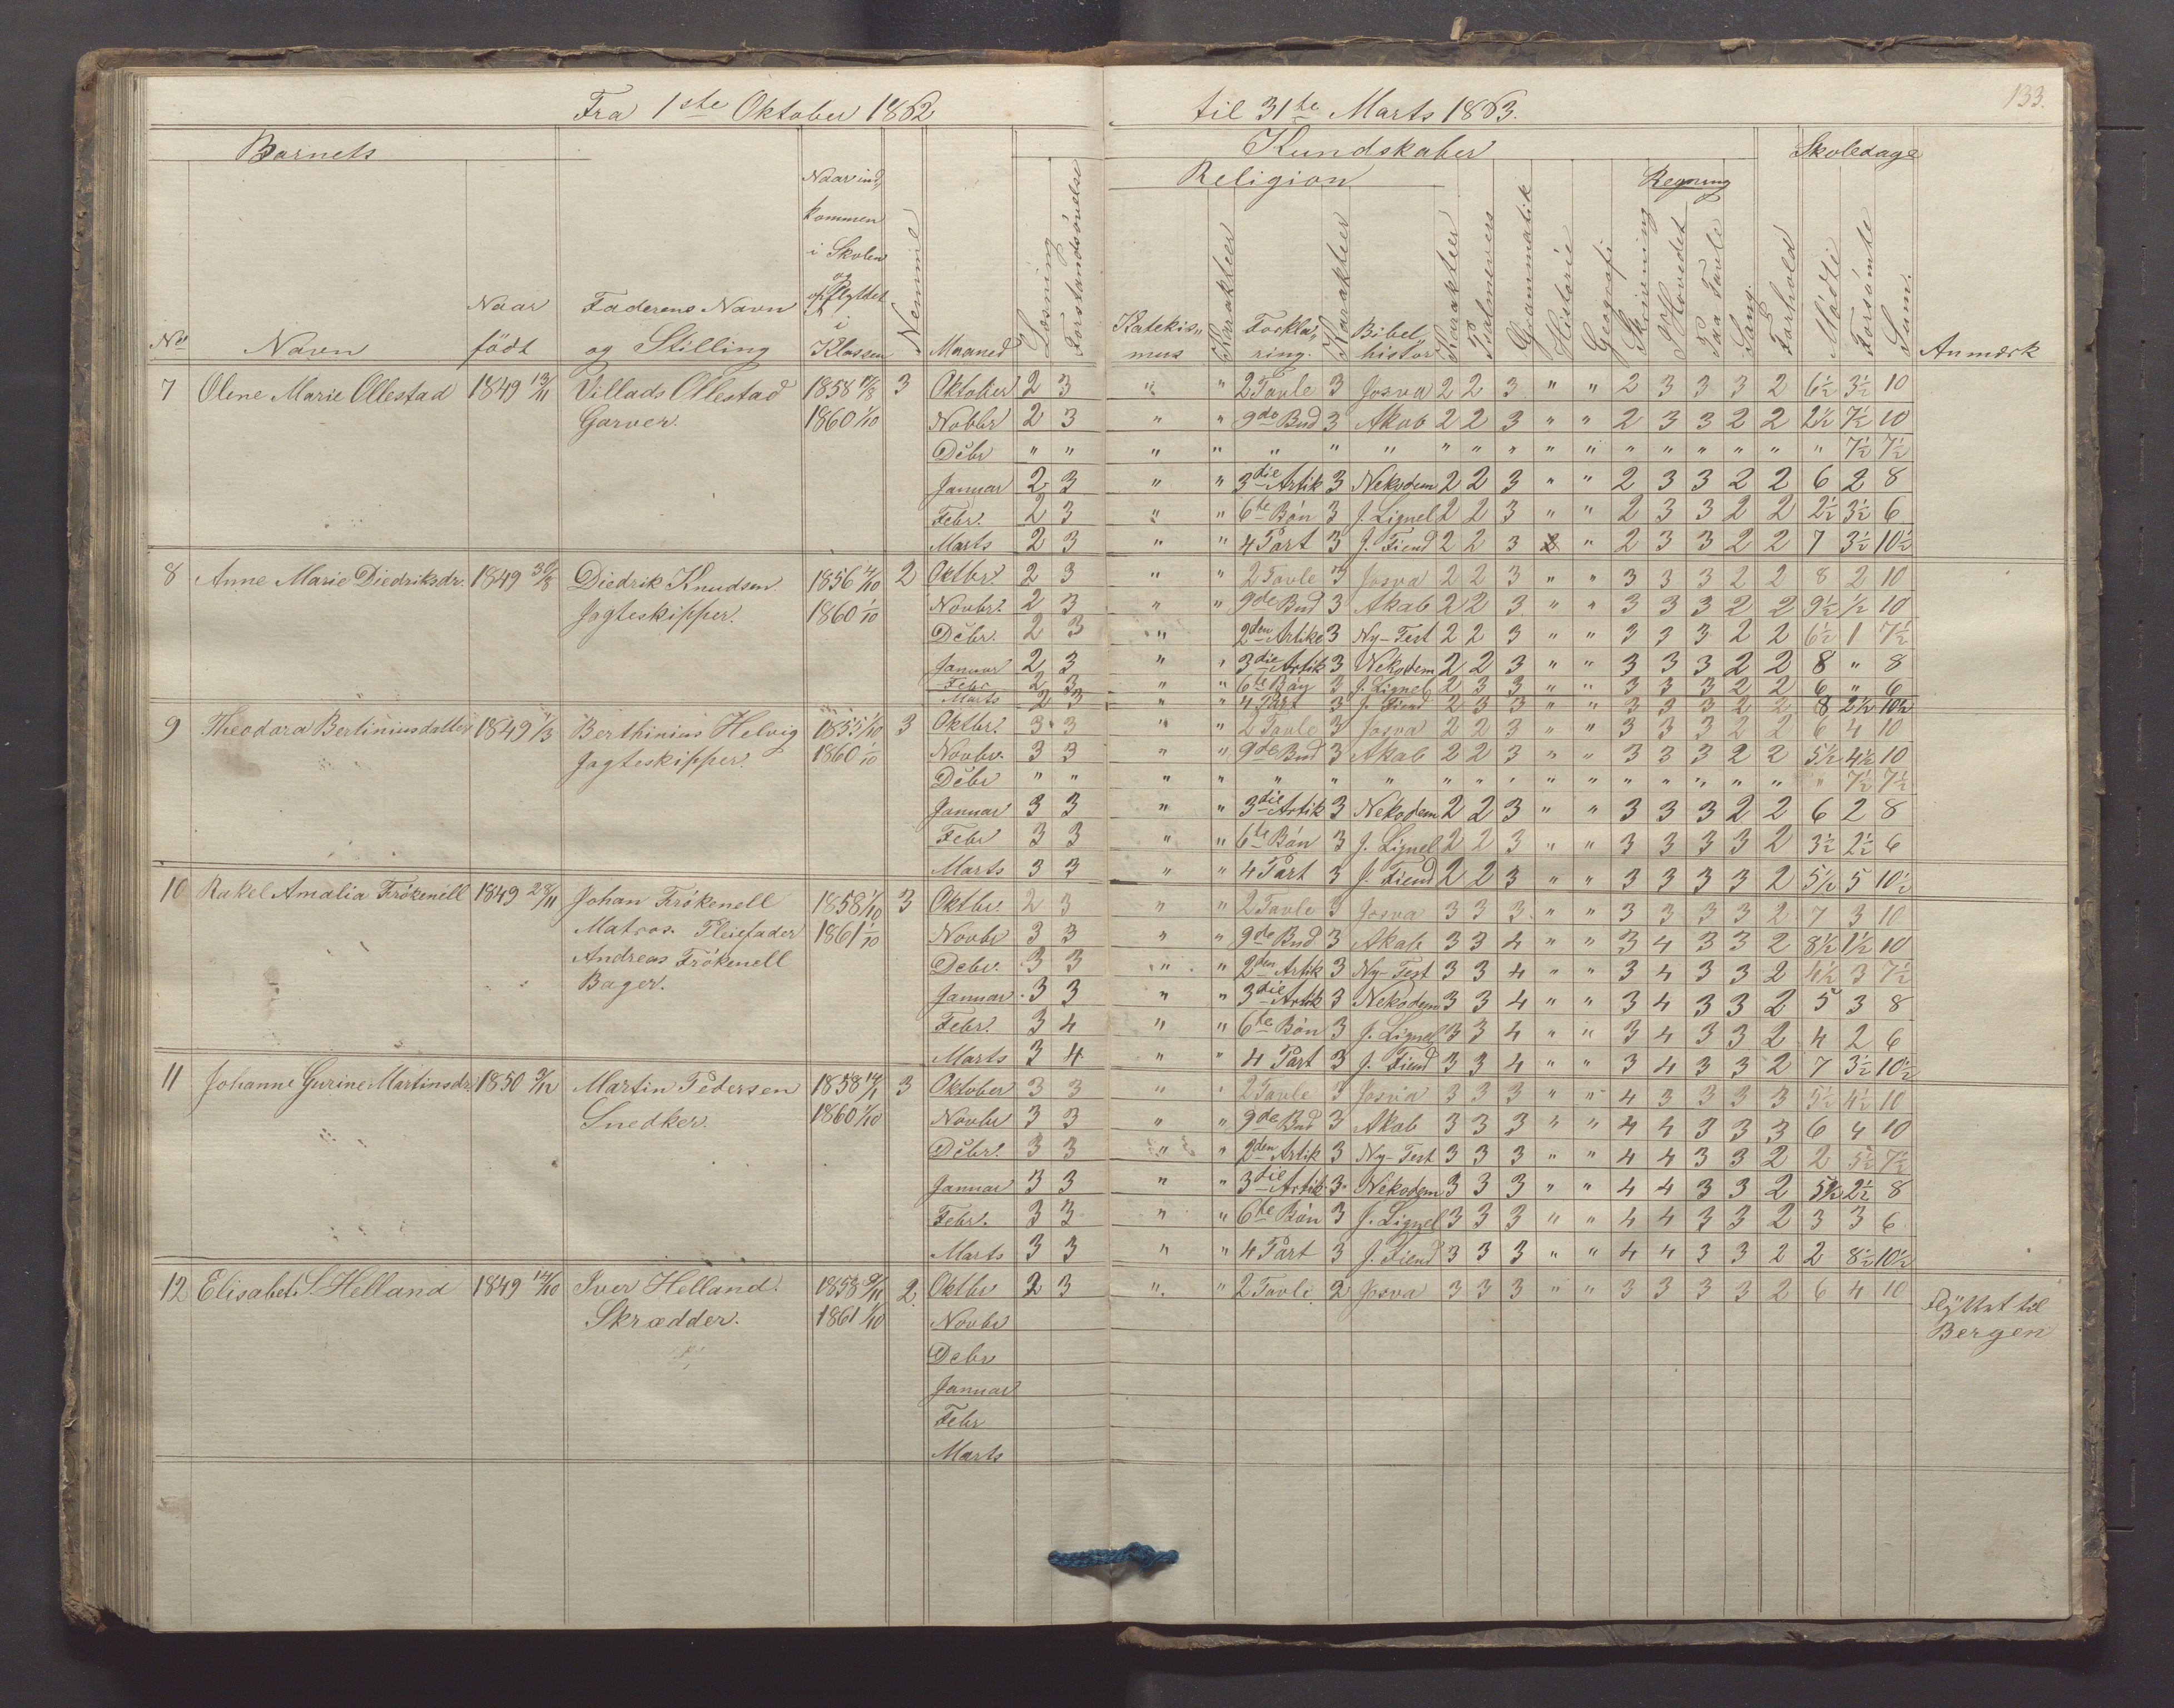 Fra 1ste Oktober 1862 til 31te Marts 1863.
133.
Barnets Kundskaber Skoledage
Religion Regning
No Navn Naar födt Faderens Navn og Stilling Naar ind„kommen i Skolen og opflyttet i Klassen Nemme Maaned Læsning Forstandsövelse Katekis„mus Karakteer Forkla„ring. Karakteer Bibel„histor Karakteer Psalmevers Grammatik Historie Geografi Skrivning I Hovedet Paa Tavle Sang. Forhold Mödte Forsömte Sum. Anmærk
7 Olene Marie Ollestad 1849 13/11 Villads Ollestad 1858 17/8 3 Oktober 2 3 " " 2 Tavle 3 Josva 2 2 3 " " 2 3 3 3 2 6½ 3½ 10
Garver. 1860 1/10 Novbr 2 3 " " 9de Bud 3 Akab 2 2 3 " " 2 3 3 2 2 2½ 7½ 10
Debr " " " " " " " " " " " " " " " " " " 7½ 7½
Januar 2 3 " " 3die Artik 3 Nekodem 2 2 3 " " 2 3 3 2 2 6 2 8
Febr. 2 3 " " 6te Bön 3 J. Lignel 2 2 3 " " 2 3 3 2 2 2½ 3½ 6
Marts 2 3 " " 4 Part 3 J. Fiend 2 2 3 " 2 3 3 2 2 7 3½ 10½
8 Anne Marie Diedriksdr. 1849 30/8 Diedrik Knudsen 1856 4/10 2 Oktbr 2 3 " " 2 Tavle 3 Josva 2 2 3 " " 3 3 3 2 2 8 2 10
Jagteskipper. 1860 1/10 Novbr. 2 3 " " 9de Bud 3 Akab 2 2 3 " " 3 3 3 2 2 9½ ½ 10
Debr. 2 3 " 2den Artike 3 Ny-Test 2 2 3 " " 3 3 3 2 2 6½ 1 7½
Januar 2 3 " " 3die Artik 3 Nekodem 2 2 3 " " 3 3 3 2 2 8 " 8
Febr 2 3 " " 6te Bön 3 J. Lignel 2 3 3 " " 3 3 3 2 2 6 " 6
Marts 2 3 " " 4 Part 3 J. Fiend 2 3 3 " " 3 3 3 2 2 8 2½ 10½
9 Theodora Bertiniusdatter 1849 Berthinius Helvig 1855 1/10 3 Oktbr. 3 3 " " 2 Tavle 3 Josva 2 2 3 " " 3 3 3 2 2 6 4 10
Jagteskipper. 1860 1/10 Novbr. 3 3 " " 9de Bud 3 Akab 2 2 3 " " 3 3 3 2 2 5½ 4½ 10
Debr " " " " " " " " " " " " " " " " " " " 7½ 7½
Januar 3 3 " " 3die Artik 3 Nekodem 2 2 3 " " 3 3 3 2 2 6 2 8
Febr 3 3 " " 6te Bön 3 J. Lignel 2 2 3 " " 3 3 3 3 2 3½ 2½ 6
Marts 3 3 " " 4 Part 3 J. Fiend 2 2 3 " " 3 3 3 3 2 5½ 5 10½
10 Rakel Amalia Frökenell 1849 28/11 Johan Frökenell 1858 1/10 3 Oktbr. 2 3 " " 2 Tavle 3 Josva 3 3 3 " " 3 3 3 3 2 7 3 10
Matros. Pleiefader 1861 1/10 Novbr 3 3 " " 9de Bud 3 Akab 3 3 4 " " 3 4 3 3 2 8½ 1½ 10
Andreas Frökenell Debr. 3 3 " " 2den Artik 3 Ny-Test 3 3 4 " " 3 4 3 3 2 4½ 3 7½
Bager. Januar 3 3 " " 3die Artik 3 Nekodem 3 3 4 " " 3 4 3 3 2 5 3 8
Febr. 3 4 " " 6te Bön 3 J. Lignel 3 3 4 " " 3 4 3 3 2 4 2 6
Marts 3 4 " " 4 Part 3 J. Fiend 3 3 4 " " 3 4 3 3 2 7 3½ 10½
11 Johanne Gurine Martinsdr. 1850 Martin Pedersen 1858 3 Oktober 3 3 " " 2 Tavle 3 Josva 3 3 3 " " 4 3 3 3 3 5½ 4½ 10
Snedker. 1860 1/10 Novbr 3 3 " " 9de Bud 3 Akab 3 3 3 " " 4 4 3 3 3 6 4 10
Debr. 3 3 " " 2den Artik 3 Ny-Test 3 3 3 " " 4 4 3 3 2 2 5½ 7½
Januar 3 3 " " 3die Artik 3 Nekodem 3 3 3 " " 4 4 3 3 2 5½ 2½ 8
Febr. 3 3 " " 6te Bön 3 J. Lignel 3 3 3 " " 4 4 3 3 2 3 3 6
Marts 3 3 " " 4 Part 3 J. Fiend 3 3 3 " " 4 4 3 3 2 2 8½ 10½
12 Elisabet S. Helland 1849 12/10 Iver Helland. 1858 2 Oktbr 2 3 " " 2 Tavle 2 Josva 3 3 3 " " 3 3 3 3 2 6 4 10 Flÿttet til
Skrædder. 1861 1/10 Novbr Bergen
Debr
Januar
Febr
Marts